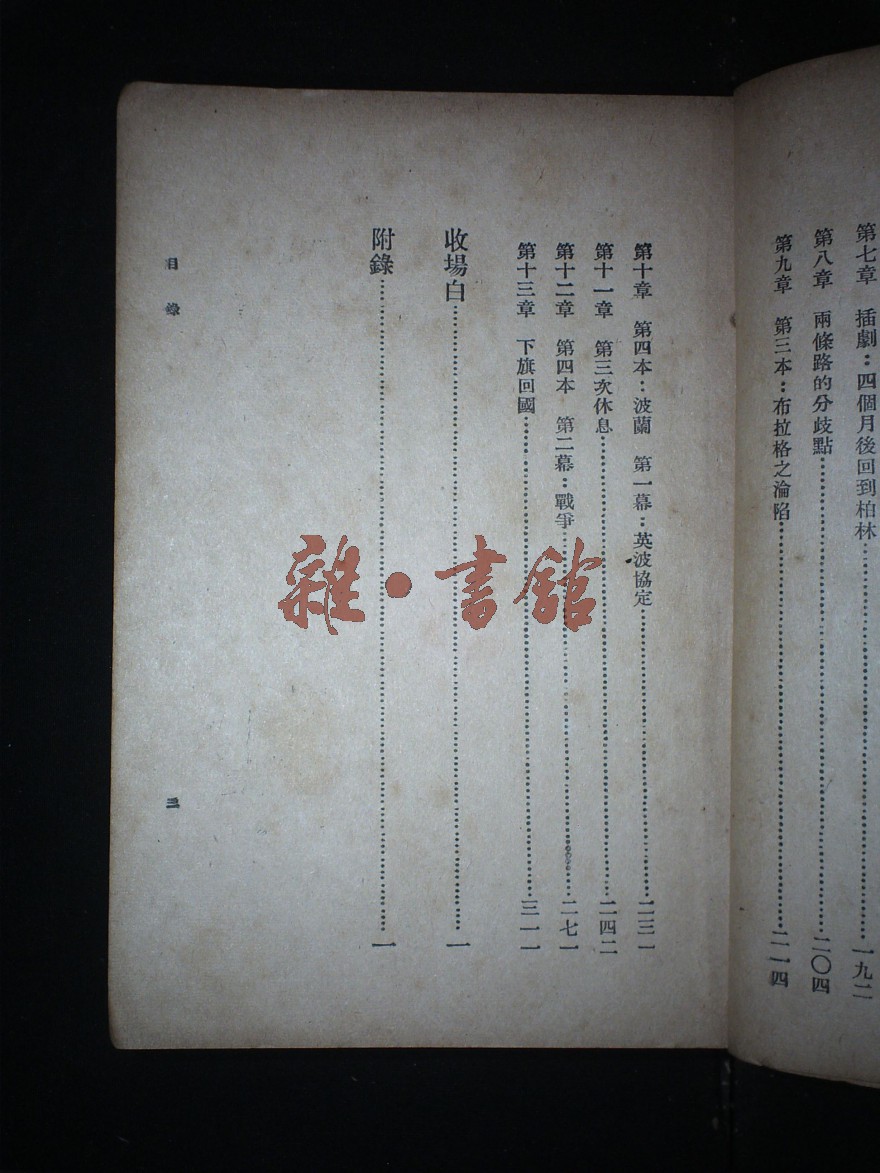 第七章　插劇：四個月後回到柏林……一九二
第八章　兩條路的分歧點……二〇四
第九章　第三本：布拉格之淪陷……二一四
第十章　第四本：波蘭　第一幕：英波協定……二三一
第十一章　第三次休息……二四二
第十二章　第四本　第二幕：戰爭……二七一
第十三章　下旗回國……三一一
收場白……一
附錄……一
目錄
三
雜·書館